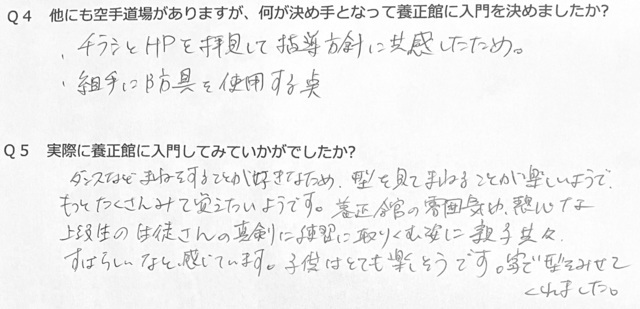 Q4 他にも空手道場がありますが、何が決め手となって養正館に入門を決めましたか?
・チラシとHPを拝見して指導方針に共感したため。
・組手に防具を使用する点
Q5 実際に養正館に入門してみていかがでしたか?
ダンスなどまねをすることが好きなため、型を見てまねることが楽しいようで、
もっとたくさんみて覚えたいようです。養正館の雰囲気や、熱心な
上級生の生徒さんの真剣に練習に取りくむ姿に親子共々、
すばらしいなと感じています。子供はとても楽しそうです。家で型をみせて
くれました。